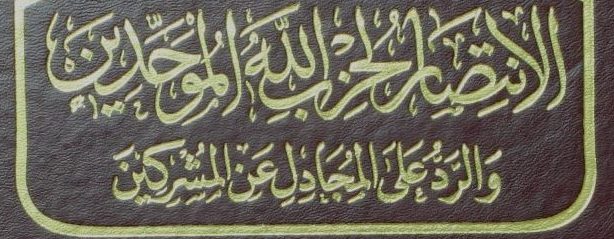 الانتِصَارُ لِحِزبِ اللهِ المُوَحِّدِينَ
وَالرَّدُّ عَلَى المُجَادِلِ عَنِ المُشْرِكِينَ